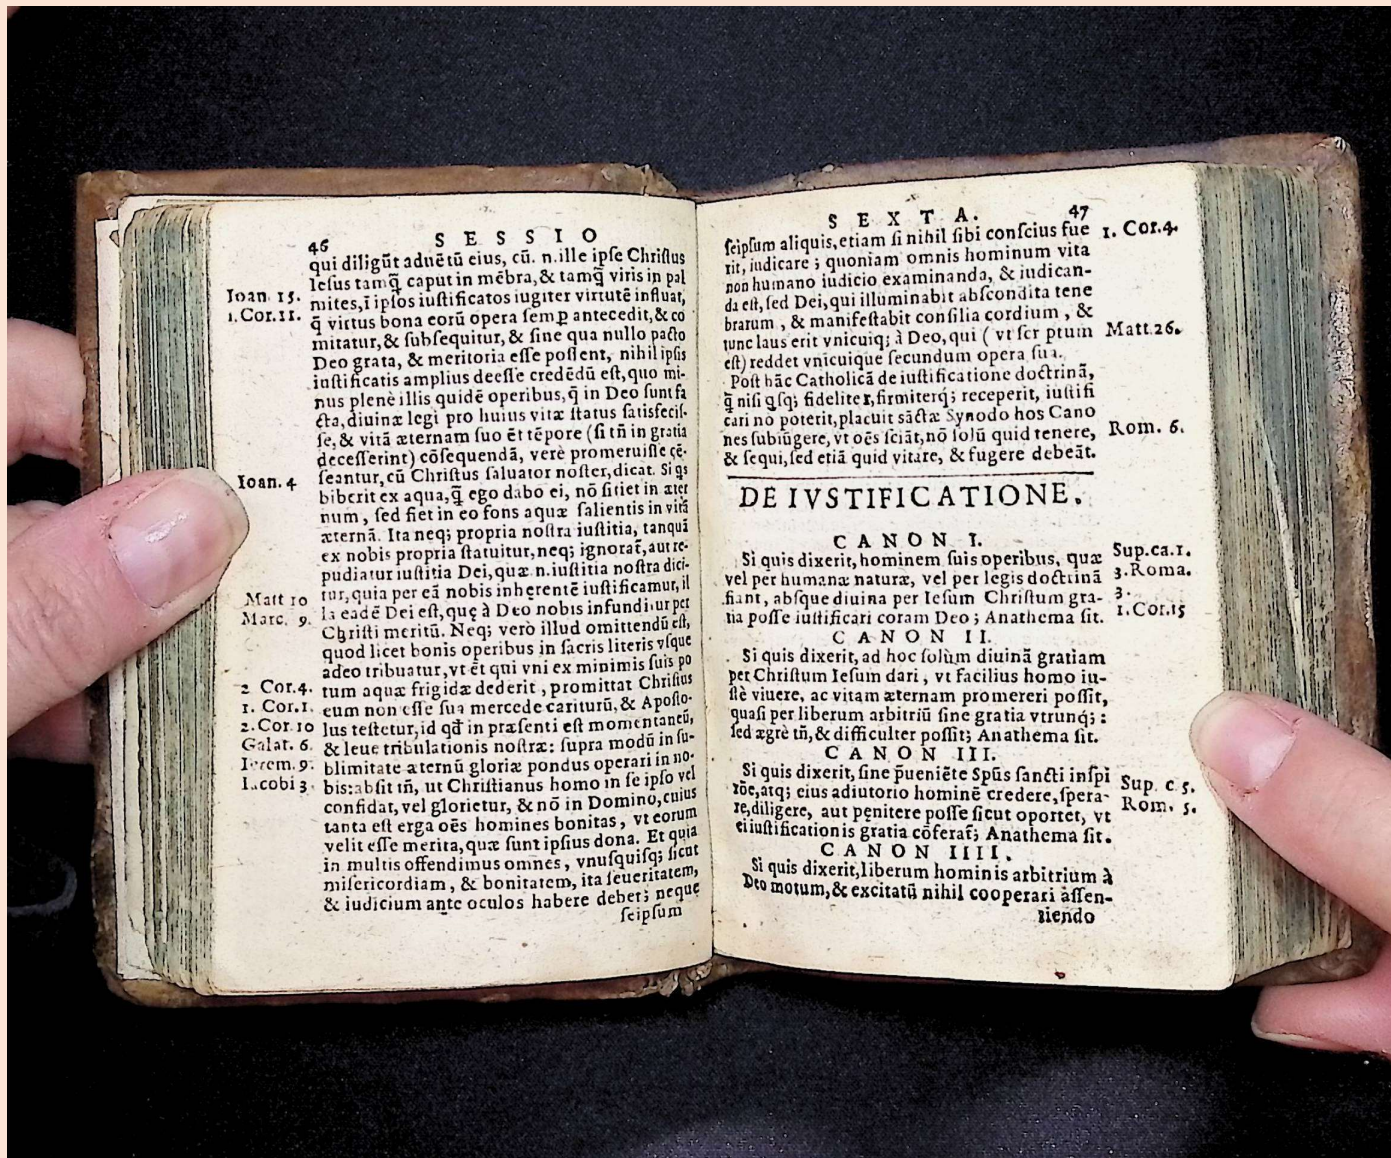 46 SESSIO
qui diligūt aduētū eius, cū. n. ille ipse Christus
Iesus tamq̃ caput in mēbra, & tamq̃ viris in pal
Ioan. 15. mites, ī ipsos iustificatos iugiter virtutē influat,
1. Cor. 11. q̃ virtus bona eorū opera semp antecedit, & co
mitatur, & subsequitur, & sine qua nullo pacto
Deo grata, & meritoria esse possent, nihil ipsis
iustificatis amplius deesse credēdū est, quo mi-
nus plenè illis quidē operibus, q̃ in Deo sunt fa
cta, diuinæ legi pro huius vitæ status satisfecis-
se, & vitā æternam suo ēt tēpore (si tñ in gratia
decesserint) cōsequendā, verè promeruisse cē-
seantur, cū Christus saluator noster, dicat. Si qs
Ioan. 4 biberit ex aqua, q̃ ego dabo ei, nō sitiet in æter
num, sed fiet in eo fons aquæ salientis in vitā
æternā. Ita neq; propria nostra iustitia, tanquā
ex nobis propria statuitur, neq; ignorat̃, aut re-
pudiatur iustitia Dei, quæ n. iustitia nostra dici-
Matt 10 tur, quia per eā nobis inhęrentē iustificamur, il
Marc. 9. la eadē Dei est, quę à Deo nobis infunditur per
Christi meritū. Neq; verò illud omittendū est,
quod licet bonis operibus in sacris literis vsque
adeo tribuatur, vt ēt qui vni ex minimis suis po
2 Cor. 4. tum aquæ frigidæ dederit, promittat Christus
1. Cor. 1. eum non esse sua mercede cariturū, & Aposto-
2. Cor. 10 lus testetur, id qđ in præsenti est momentaneū,
Galat. 6. & leue tribulationis nostræ: supra modū in su-
Ierem. 9. blimitate æternū gloriæ pondus operari in no-
Iacobi 3. bis: absit tñ, ut Christianus homo in se ipso vel
confidat, vel glorietur, & nō in Domino, cuius
tanta est erga oēs homines bonitas, vt eorum
velit esse merita, quæ sunt ipsius dona. Et quia
in multis offendimus omnes, vnusquisq; sicut
misericordiam, & bonitatem, ita seueritatem,
& iudicium ante oculos habere debet; neque
seipsum
SEXTA. 47
seipsum aliquis, etiam si nihil sibi conscius fue 1. Cor. 4.
rit, iudicare; quoniam omnis hominum vita
non humano iudicio examinanda, & iudican-
da est, sed Dei, qui illuminabit abscondita tene
brarum, & manifestabit consilia cordium, &
tunc laus erit vnicuiq; à Deo, qui ( vt scr ptum Matt. 26.
est) reddet vnicuique secundum opera sua.
Post hāc Catholicā de iustificatione doctrinā,
q̃ nisi qsq; fideliter, firmiterq; receperit, iustifi
cari nō poterit, placuit sāctæ Synodo hos Cano
nes subiūgere, vt oēs sciāt, nō solū quid tenere, Rom. 6.
& sequi, sed etiā quid vitare, & fugere debeāt.
DE IVSTIFICATIONE.
CANON I.
Si quis dixerit, hominem suis operibus, quæ Sup. ca. 1.
vel per humanæ naturæ, vel per legis doctrinā 3. Roma.
fiant, absque diuina per Iesum Christum gra- 3.
tia posse iustificari coram Deo; Anathema sit. 1. Cor. 15
CANON II.
Si quis dixerit, ad hoc solùm diuinā gratiam
per Christum Iesum dari, vt facilius homo iu-
stè viuere, ac vitam æternam promereri possit,
quasi per liberum arbitriū sine gratia vtrunq; :
sed ægrè tñ, & difficulter possit; Anathema sit.
CANON III.
Si quis dixerit, sine p̃ueniēte Spūs sancti inspi
rōe, atq; eius adiutorio hominē credere, spera- Sup. c 5.
re, diligere, aut pęnitere posse sicut oportet, vt Rom. 5.
ei iustificationis gratia cōferat̃; Anathema sit.
CANON IIII.
Si quis dixerit, liberum hominis arbitrium à
Deo motum, & excitatū nihil cooperari assen-
tiendo